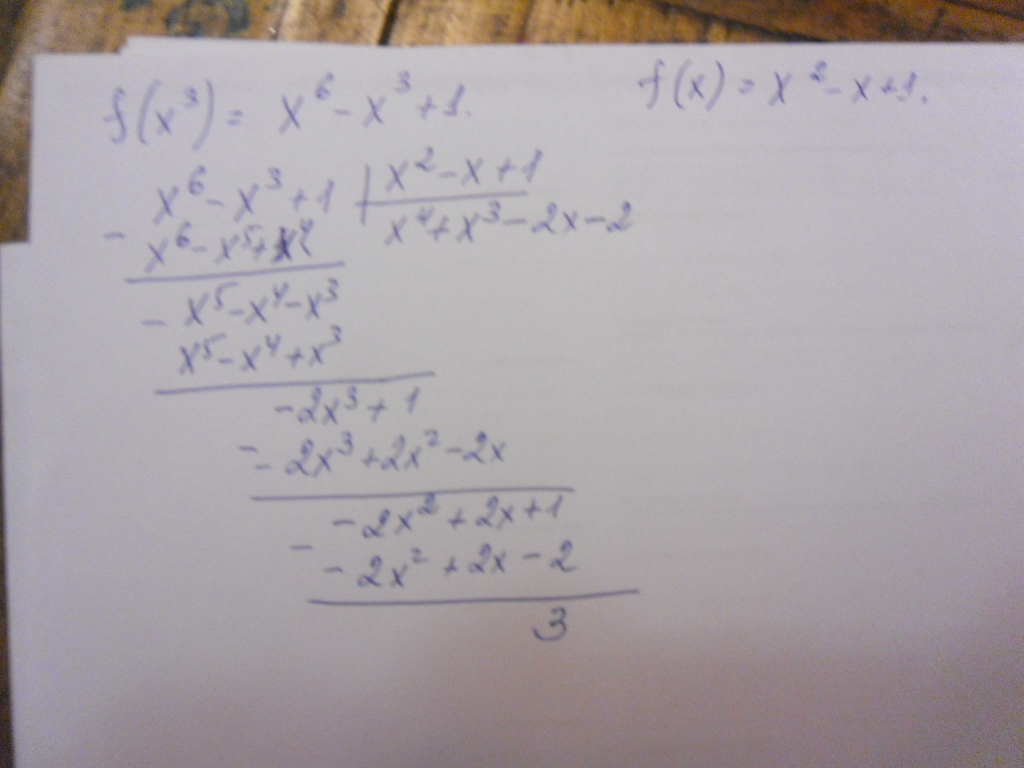 f(x³) = x⁶ - x³ + 1. f(x) = x² - x + 1.
x⁶ - x³ + 1 | x² - x + 1
- x⁶ - x⁵ + x⁴ x⁴ + x³ - 2x - 2
- x⁵ - x⁴ - x³
x⁵ - x⁴ + x³
-2x³ + 1
- -2x³ + 2x² - 2x
-2x² + 2x + 1
- -2x² + 2x - 2
3